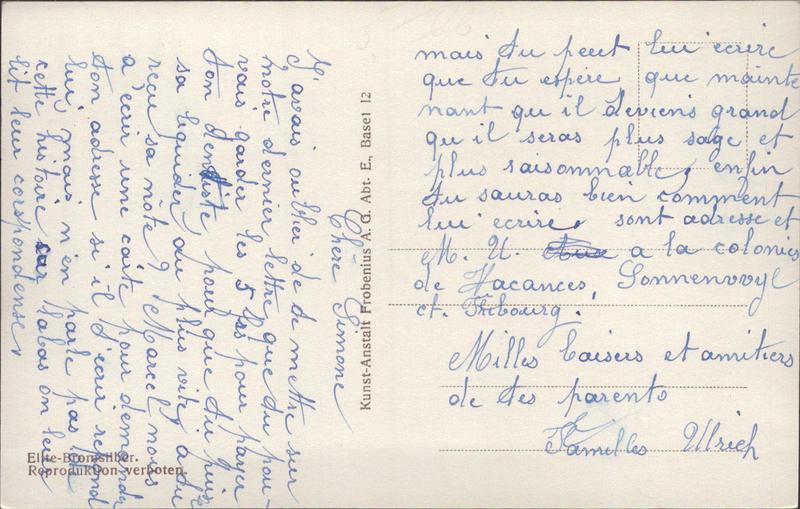 Chère Simone
J'avais oublier de de mettre sur
notre dernier lettre que tu pou-
vais garder les 5 frs pour payer
ton dentiste pour que tu puis
sa liquider, du plus vite, a tu
reçu sa note? Marcel nous
a écrir une carte pour demander
ton adresse si il t'ecrir repond
lui, mais n'en parle pas de
cette histoire car labas on leurs
lit leur corspondense,
mais tu peut lui écrire
que tu espére que mainte
nant qu il deviens grand
qu il seras plus sage et
plus raisonnable, enfin
tu sauras bien comment
lui ecrire, sont adresse et
M. U. a la colonies
de Vacances, Sonnenwyl
ct. Fribourg.
Milles baisers et amitiers
de tes parents
Familles Ulrich
Kunst-Anstalt Frobenius A. G. Abt. E., Basel 12
Elite-Bromsilber.
Reproduktion verboten.